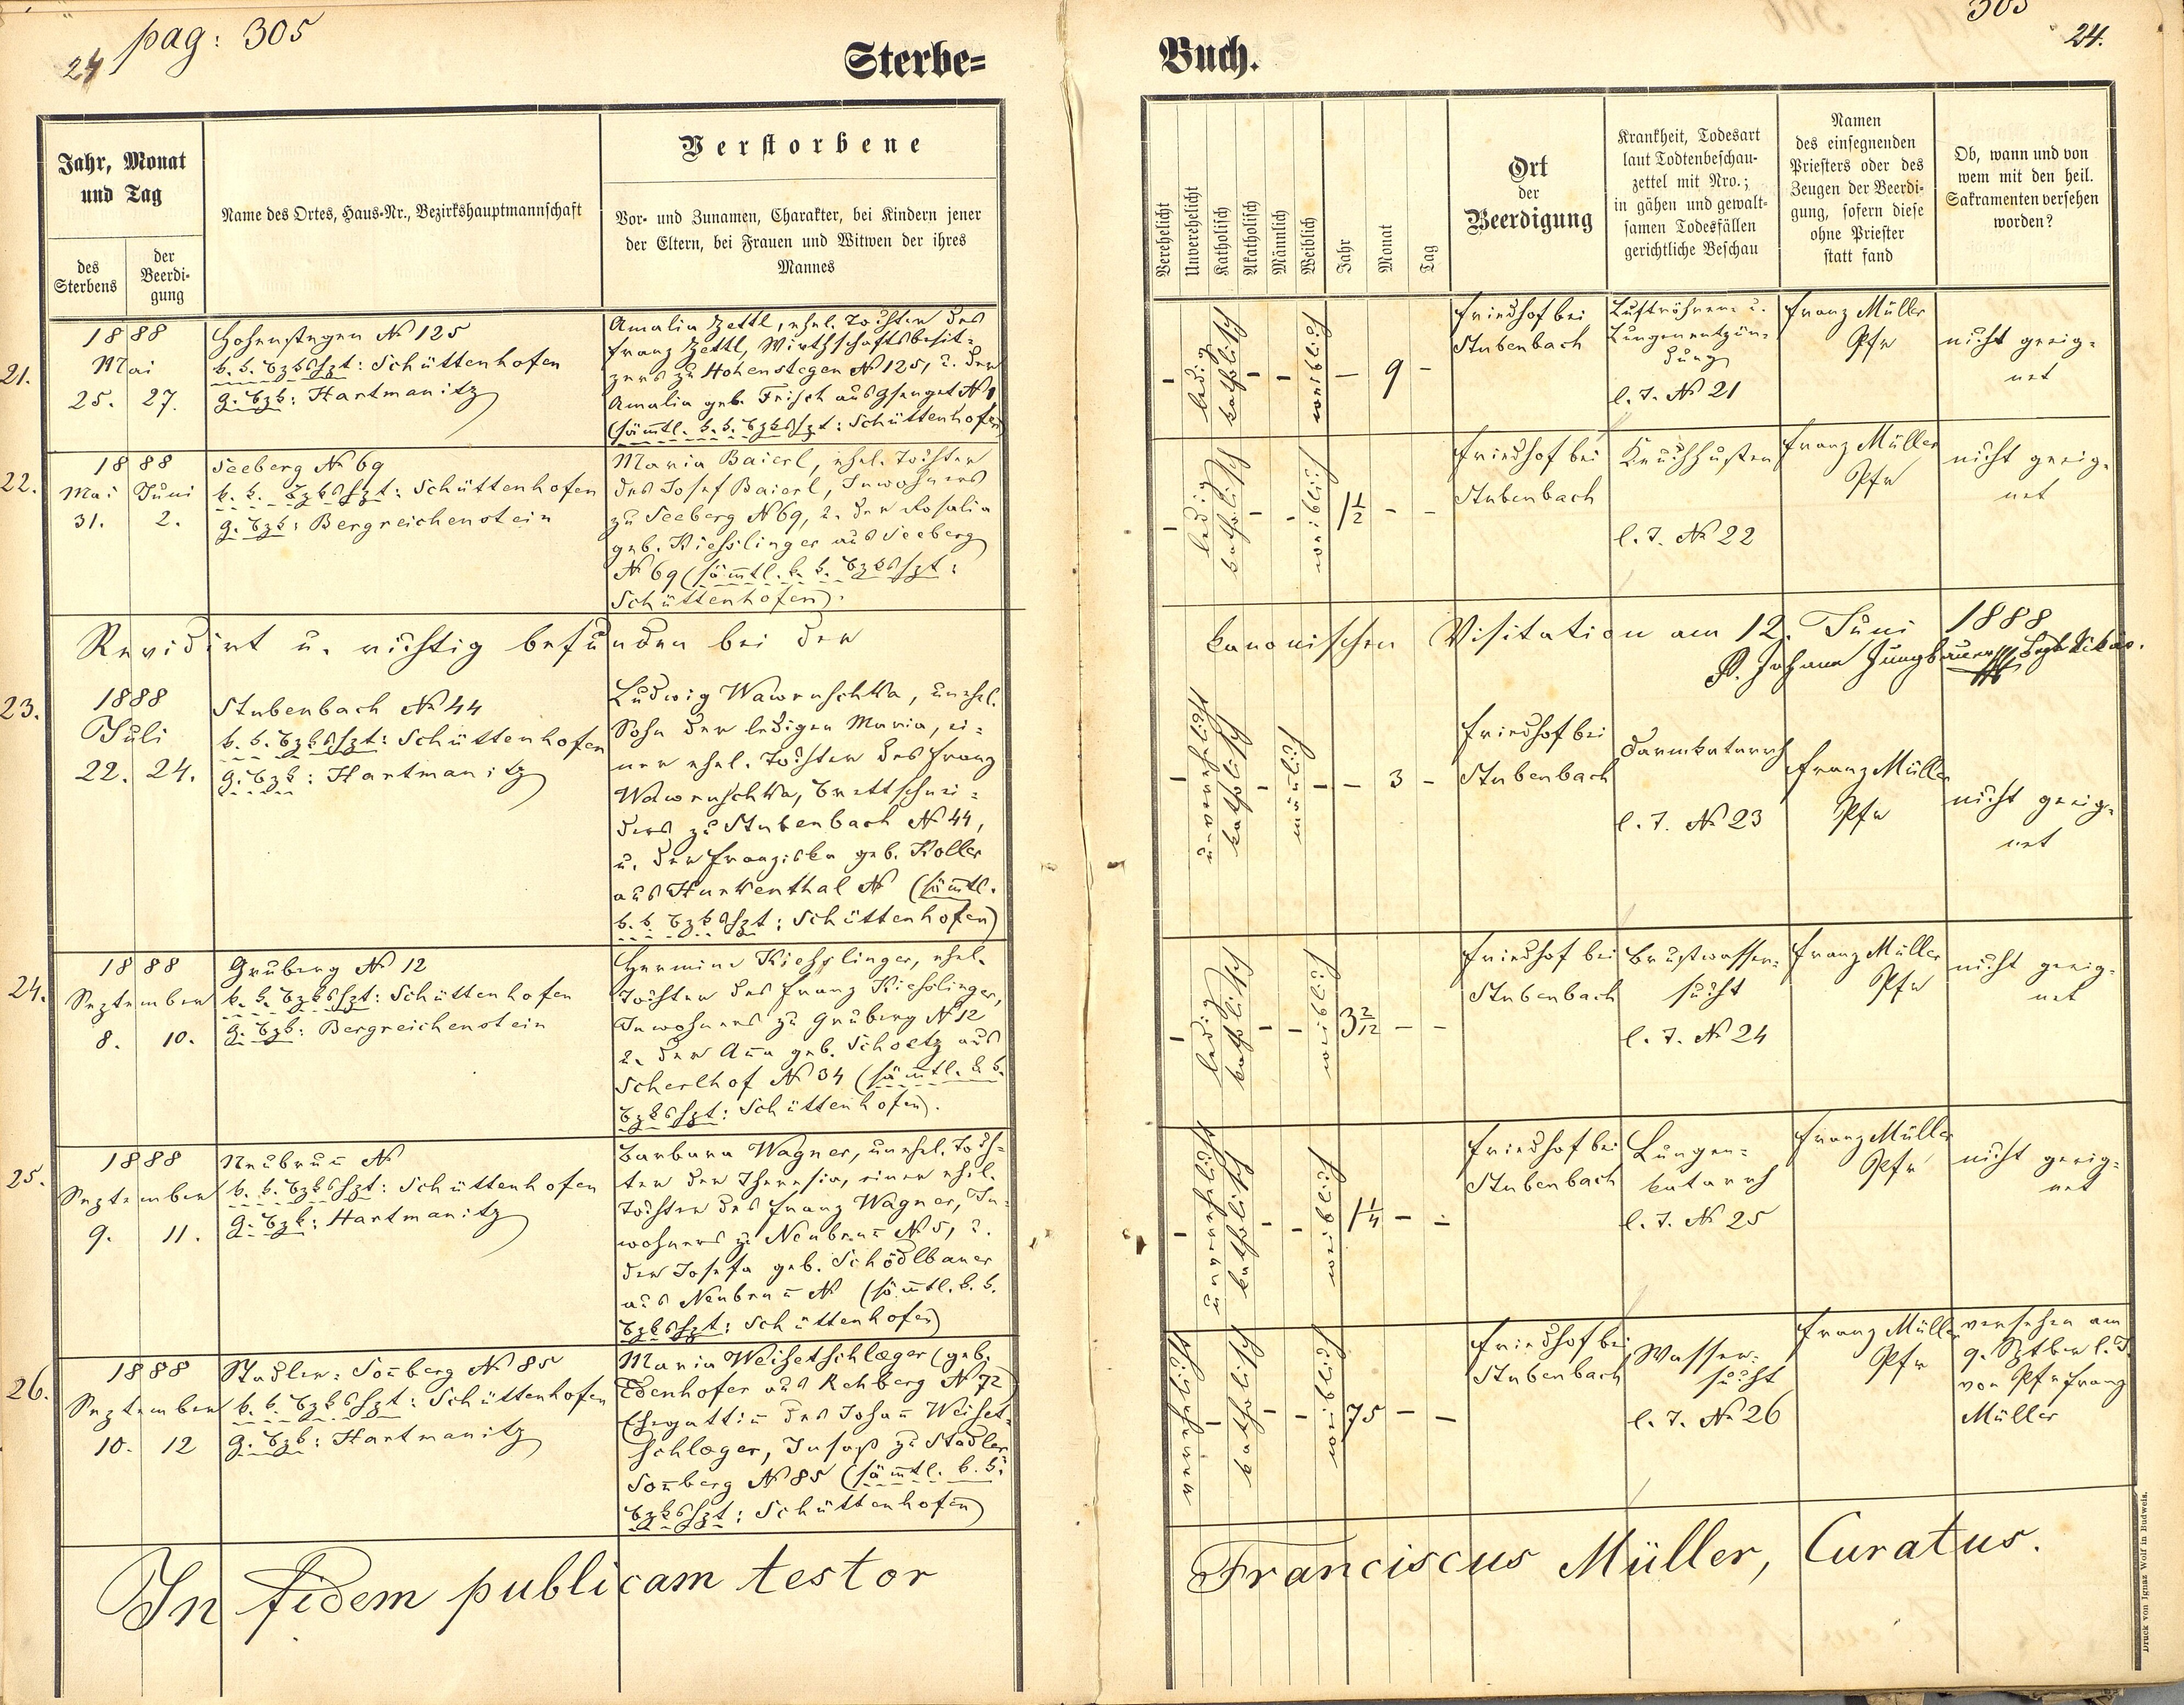 pag: 305
24
Sterbe=
Jahr, Monat
und Tag
des
Sterbens
der
Beerdi-
gung
Name des Ortes, Haus-Nr., Bezirkshauptmannschaft
Verstorbene
Vor- und Zunamen, Charakter, bei Kindern jener
der Eltern, bei Frauen und Witwen der ihres
Mannes
21.
1888
Mai
25. 27.
Hohenstegen № 125
k. k. Bzkshpt: Schüttenhofen
G. Bzk: Hartmanitz
Amalia Zettl, ehel. Tochter des
Franz Zettl, Wirthschaftsbesit=
zers zu Hohenstegen № 125, u. der
Amalia geb. Frisch aus Gsenget № 1
(sämtl. k. k. Bzkshpt: Schüttenhofen)
22.
1888
Mai Juni
31. 2.
Seeberg № 69
k. k. Bzkshpt: Schüttenhofen
G. Bzk: Bergreichenstein
Maria Baierl, ehel. Tochter
des Josef Baierl, Inwohners
zu Seeberg № 69, u. der Rosalia
geb. Kiesslinger aus Seeberg
№ 69 (sämtl. k. k. Bzkshpt:
Schüttenhofen).
Revidirt u. richtig befunden bei der
23.
1888
Juli
22. 24.
Stubenbach № 44
k. k. Bzkshpt: Schüttenhofen
G. Bzk: Hartmanitz
Ludwig Waweruschka, unehel.
Sohn der ledigen Maria, ei=
ner ehel. Tochter des Franz
Waweruschka, Brettschnei=
ders zu Stubenbach № 44,
u. der Franziska geb. Koller
aus Hurkenthal № (sämtl.
k. k. Bzkshpt: Schüttenhofen)
24.
1888
September
8. 10.
Gruberg № 12
k. k. Bzkshpt: Schüttenhofen
G. Bzk: Bergreichenstein
Hermine Kiesslinger, ehel.
Tochter des Franz Kiesslinger,
Inwohners zu Gruberg № 12
u. der Anna geb. Scholtz aus
Scherlhof № 34 (sämtl. k k.
Bzkshpt: Schüttenhofen).
25.
1888
September
9. 11.
Neubrun̄ №
k. k. Bzkshpt: Schüttenhofen
G. Bzk: Hartmanitz
Barbara Wagner, unehel. Toch=
ter der Theresia, einer ehel.
Tochter des Franz Wagner, In=
wohners zu Neubrun̄ № 5, u.
der Josefa geb. Schödlbauer
aus Neubrun̄ № (sämtl. k. k.
Bzkshpt: Schüttenhofen)
26.
1888
September
10. 12
Stadler: Son̄berg № 85
k. k. Bzkshpt: Schüttenhofen
G. Bzk: Hartmanitz
Maria Weisetschläger (geb.
Edenhofer aus Rehberg № 72)
Ehegattin̄ des Johan̄ Weiset=
schläger, Insaß zu Stadler
Son̄berg № 85 (sämtl. k. k.
Bzkshpt: Schüttenhofen)
In fidem publicam testor
305
24.
Buch.
Verehelicht
Unverehelicht
Katholisch
Akatholisch
Männlich
Weiblich
Jahr
Monat
Tag
Ort
der
Beerdigung
Krankheit, Todesart
laut Todtenbeschau-
zettel mit Nro.;
in gähen und gewalt-
samen Todesfällen
gerichtliche Beschau
Namen
des einsegnenden
Priesters oder des
Zeugen der Beerdi-
gung, sofern diese
ohne Priester
statt fand
Ob, wann und von
wem mit den heil.
Sakramenten versehen
worden?
- ledig katholisch - - weiblich - 9 -
Friedhof bei
Stubenbach
Luftröhren= u.
Lungenentzün=
dung
l. T. № 21
Franz Müller
Pfr
nicht geeig=
net
- ledig katholisch - - weiblich 1½ - -
Friedhof bei
Stubenbach
Keuchhusten
l. T. № 22
Franz Müller
Pfr
nicht geeig=
net
kanonischen Visitation am 12. Juni 1888
P. Johann Jungbauer Bez. Vikär.
- unverehelicht katholisch - mänlich - - 3 -
Friedhof bei
Stubenbach
Darmkatarrh
l. T. № 23
Franz Müller
Pfr
nicht geeig=
net
- ledig katholisch - - weiblich 3 2/12 - -
Friedhof bei
Stubenbach
Brustwasser=
sucht
l. T. № 24
Franz Müller
Pfr
nicht geeig=
net
- unverehelicht katholisch - - weiblich 1¼ - -
Friedhof bei
Stubenbach
Lungen=
katarrh
l. T. № 25
Franz Müller
Pfr
nicht geeig=
net
verehelicht - katholisch - - weiblich 75 - -
Friedhof bei
Stubenbach
Wasser=
sucht
l. T. № 26
Franz Müller
Pfr
versehen am
9. Sptber l. J.
von Pfr Franz
Müller
Franciscus Müller, Curatus.
Druck von Ignaz Wolf in Budweis.